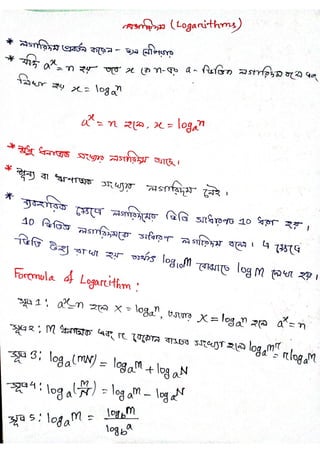 লগারিদম (Logarithms)
* লগারিদম প্রবর্তন করেন - জন নেপিয়ার
* যদি aˣ = n হয় তবে x কে n-এর a - ভিত্তিক লগারিদম বলে এবং
লিখা হয় x = logₐn
aˣ = n হলে, x = logₐn
* শুধু ধনাত্মক সংখ্যার লগারিদম আছে।
* শূন্য বা ঋণাত্মক সংখ্যার লগারিদম নেই।
* ব্যবহারিক ক্ষেত্রে লগারিদমের ভিত্তি সাধারণত 10 ধরা হয়।
10 ভিত্তিক লগারিদমকে সাধারণ লগারিদম বলে। এ ক্ষেত্রে
ভিত্তি উহ্য রাখা হয় অর্থাৎ log₁₀M বোঝাতে log M লেখা হয়।
Formula of Logarithm :
সূত্র 1 : aˣ = n হলে X = logₐn, আবার X = logₐn হলে aˣ = n
সূত্র 2 : M ধনাত্মক এবং r যেকোন বাস্তব সংখ্যা হলে logₐMʳ = r logₐM
সূত্র 3 : logₐ(MN) = logₐM + logₐN
সূত্র 4 : logₐ(M/N) = logₐM - logₐN
সূত্র 5 : logₐM = log_bM / log_ba